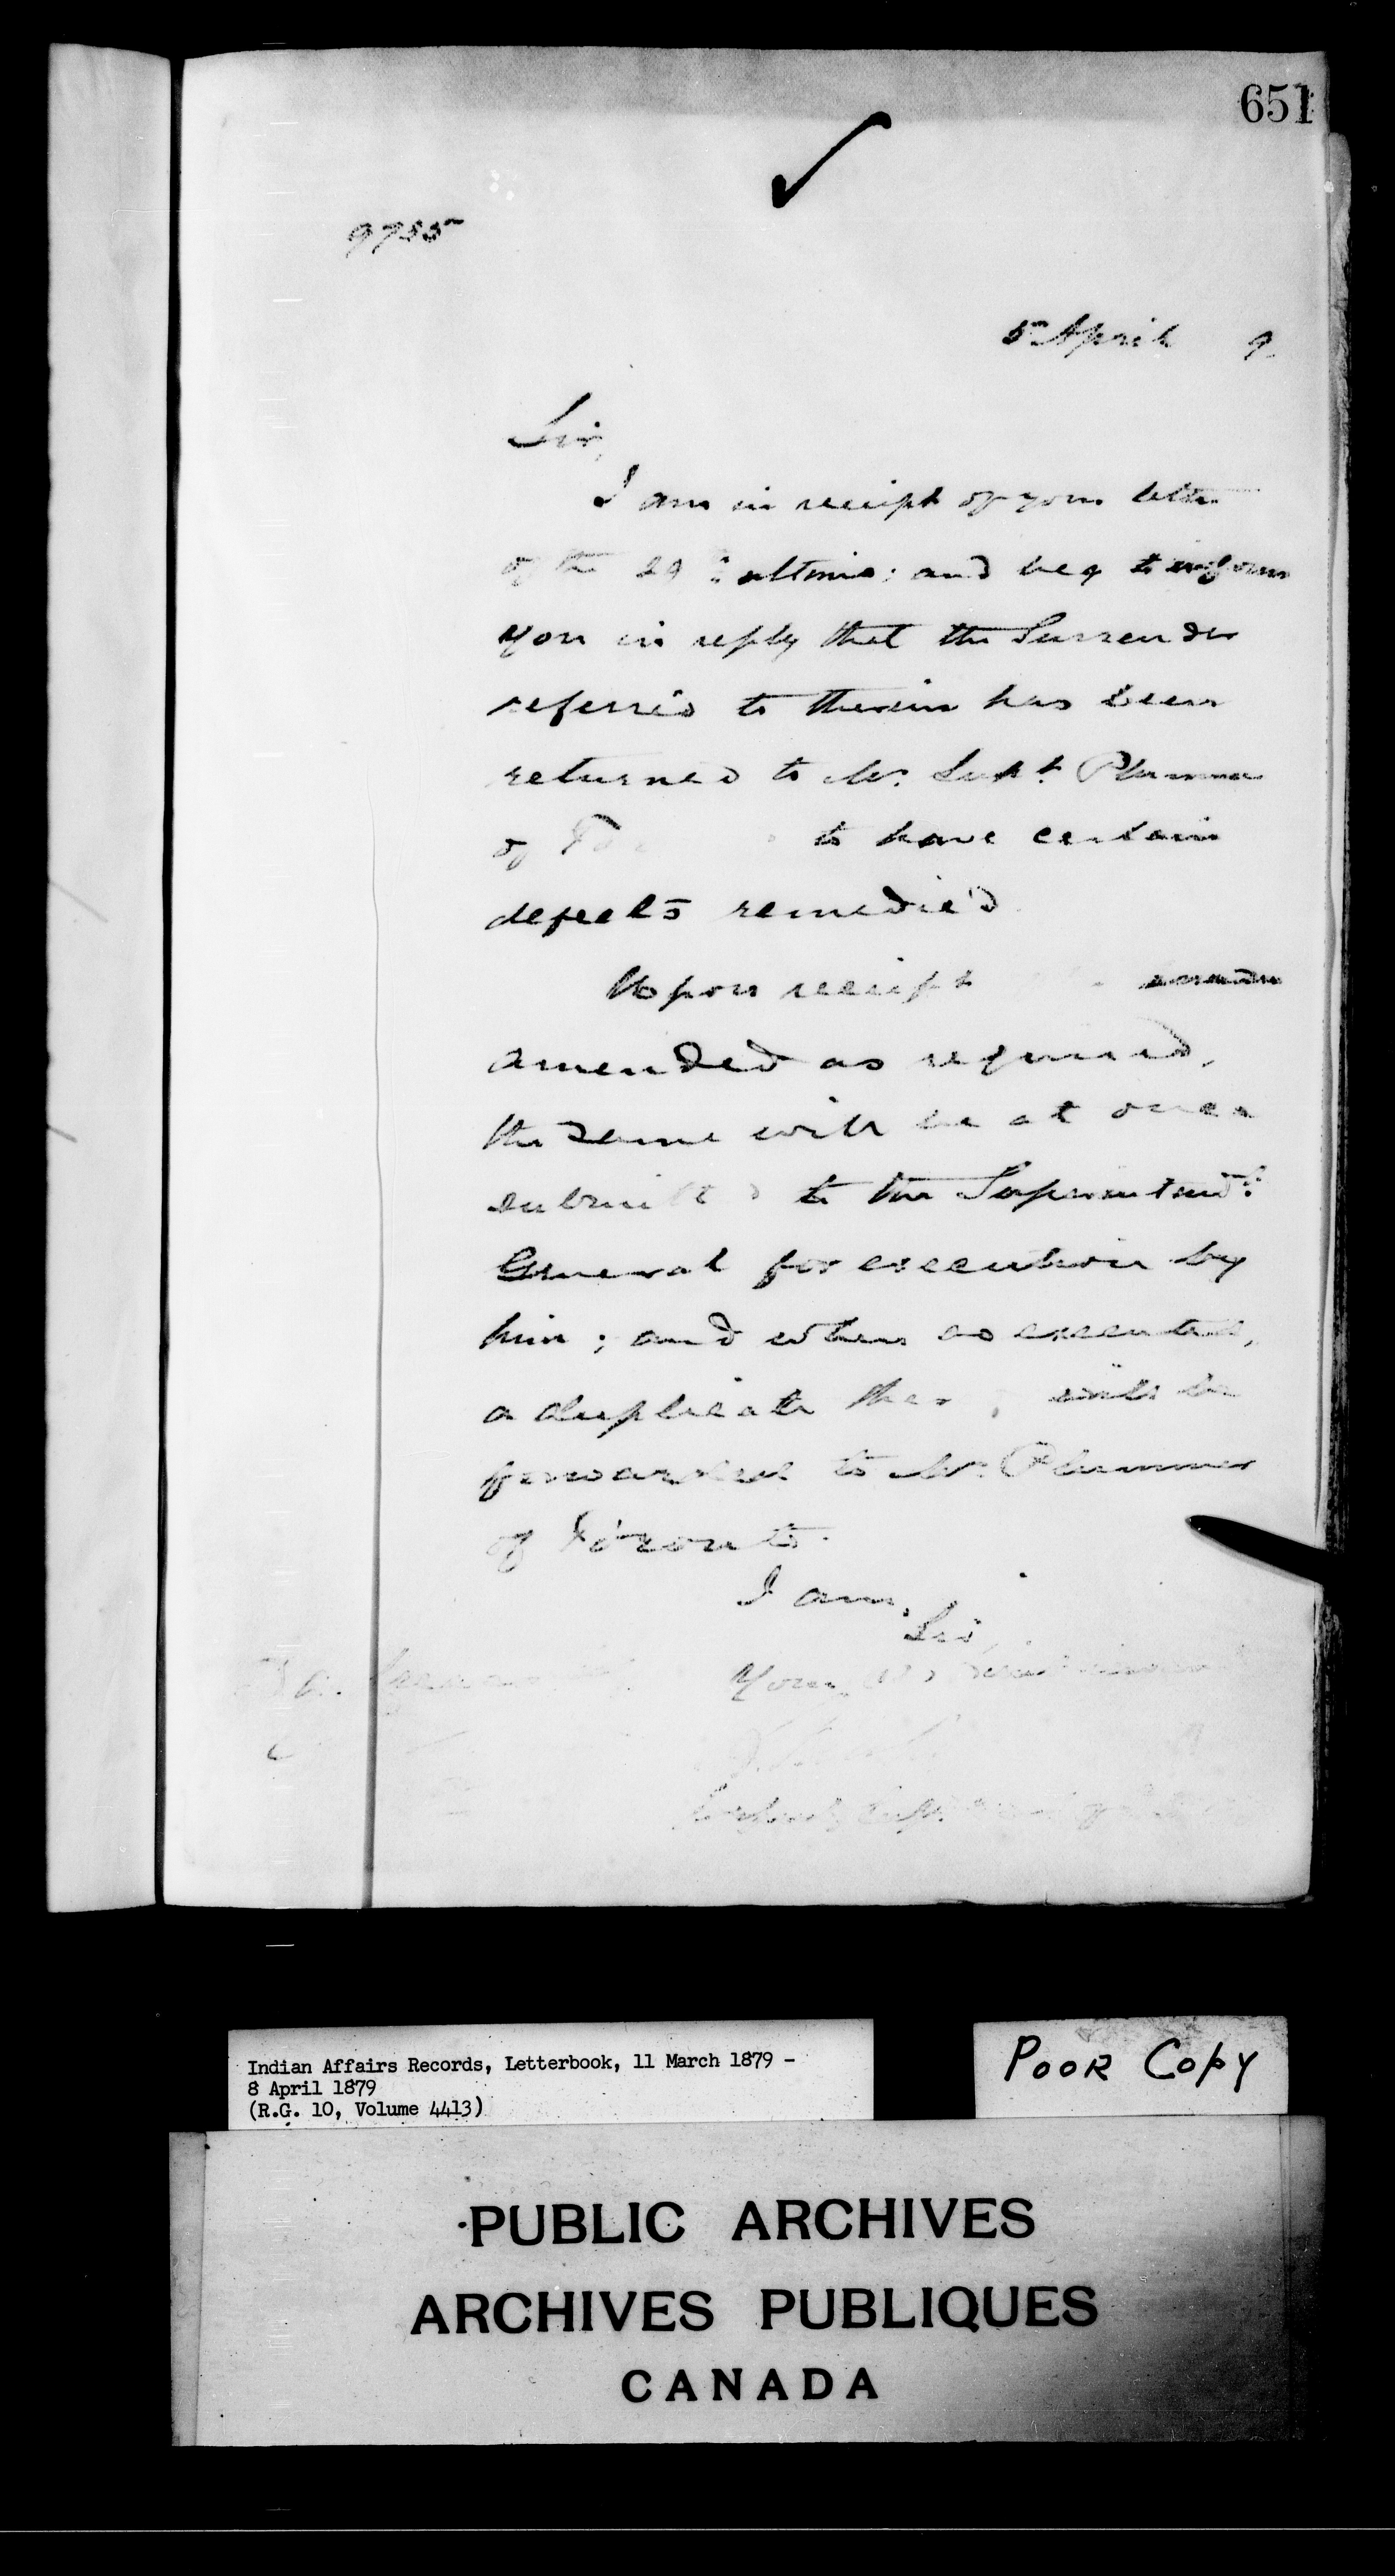 651
9755
5 April 9
Sir,
I am in receipt of your letter
of the 29th ultimo; and beg to inform
you in reply that the Surrender
referred to therein has been
returned to Mr. Supt. Plummer
of to have certain
defects remedied
Upon receipt surrender
amended as required,
the same will be at once
submitted to the Superintendt.
General for execution by
him; and when so executed,
a duplicate thereof will be
forwarded to Mr. Plummer
of Toronto.
I am,
Sir,
Your
Indian Affairs Records, Letterbook, 11 March 1879 -
8 April 1879
(R.G. 10, Volume 4413)
POOR COPY
PUBLIC ARCHIVES
ARCHIVES PUBLIQUES
CANADA